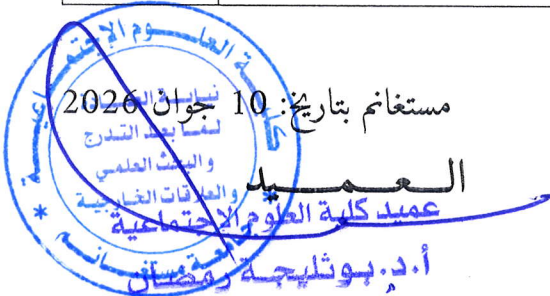 مستغانم بتاريخ: 10 جوان 2026
العميد
عميد كلية العلوم الإجتماعية
أ.د. بوثليجة رمضان
كلية العلوم الإجتماعية
نيابة العمادة
لما بعد التدرج
والبحث العلمي
والعلاقات الخارجية
جامعة مستغانم